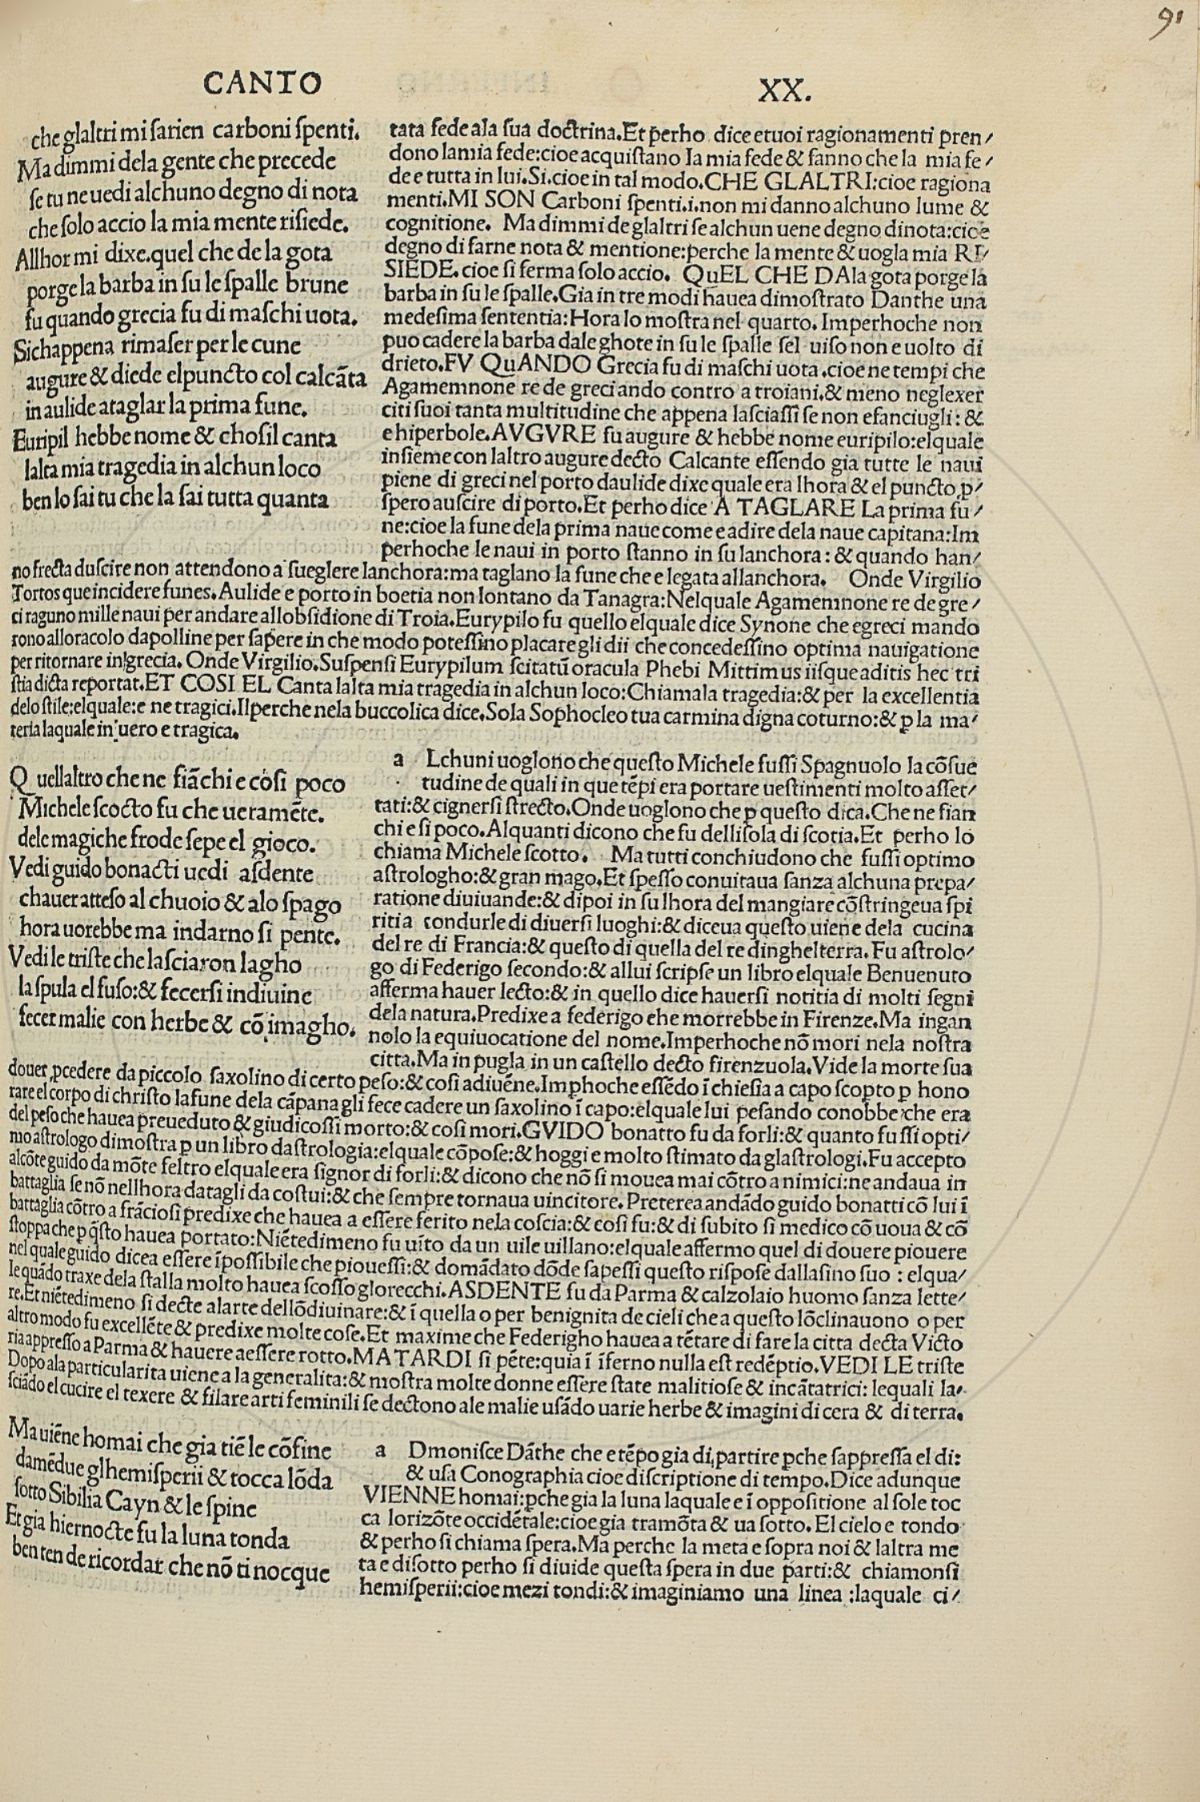 91
CANTO XX.
che glaltri mi sarien carboni spenti.
Ma dimmi dela gente che precede
se tu ne uedi alchuno degno di nota
che solo accio la mia mente risiede.
Allhor mi dixe.quel che de la gota
porge la barba in su le spalle brune
fu quando grecia fu di maschi uota.
Sichappena rimaser per le cune
augure & diede elpuncto col calcãta
in aulide ataglar la prima fune.
Euripil hebbe nome & chosil canta
lalta mia tragedia in alchun loco
ben lo sai tu che la sai tutta quanta
tata fede ala sua doctrina.Et perho dice etuoi ragionamenti pren/
dono lamia fede:cioe acquistano la mia fede & fanno che la mia fe/
de e tutta in lui.Si.cioe in tal modo.CHE GLALTRI:cioe ragiona
menti.MI SON Carboni spenti.i.non mi danno alchuno lume &
cognitione. Ma dimmi de glaltri se alchun uene degno dinota:cioe
degno di farne nota & mentione:perche la mente & uogla mia RE/
SIEDE.cioe si ferma solo accio. QuEL CHE DAla gota porge la
barba in su le spalle.Gia in tre modi hauea dimostrato Danthe una
medesima sententia:Hora lo mostra nel quarto.Imperhoche non
puo cadere la barba dale ghote in su le spalle sel uiso non e uolto di
drieto.FV QuANDO Grecia fu di maschi uota.cioe ne tempi che
Agamemnone re de greci ando contro a troiani.& meno neglexer
citi suoi tanta multitudine che appena lasciassi se non efanciugli: &
e hiperbole.AVGVRE fu augure & hebbe nome euripilo:elquale
insieme con laltro augure decto Calcante essendo gia tutte le naui
piene di greci nel porto daulide dixe quale era lhora & el puncto.p/
spero auscire di porto.Et perho dice A TAGLARE La prima fu/
ne:cioe la fune dela prima naue come e adire dela naue capitana:Im
perhoche le naui in porto stanno in su lanchora: & quando han/
no frecta duscire non attendono a sueglere lanchora:ma taglano la fune che e legata allanchora. Onde Virgilio
Tortos que incidere funes.Aulide e porto in boetia non lontano da Tanagra:Nelquale Agamemnone re de gre/
ci raguno mille naui per andare allobsidione di Troia.Eurypilo fu quello elquale dice Synone che egreci mando
rono alloracolo dapolline per sapere in che modo potessino placare gli dii che concedessino optima nauigatione
per ritornare in grecia.Onde Virgilio.Suspensi Eurypilum scitatũ oracula Phebi Mittimus iisque aditis hec tri
stia dicta reportat.ET COSI EL Canta lalta mia tragedia in alchun loco:Chiamala tragedia:& per la excellentia
delo stile:elquale:e ne tragici.Ilperche nela buccolica dice.Sola Sophocleo tua carmina digna coturno:& p la ma/
teria laquale in uero e tragica.
Q uellaltro che ne fiãchi e cosi poco
Michele scocto fu che ueramẽte.
dele magiche frode sepe el gioco.
Vedi guido bonacti uedi asdente
chauer atteso al chuoio & alo spago
hora uorebbe ma indarno si pente.
Vedi le triste che lasciaron lagho
la spula el fuso:& fecersi indiuine
fecer malie con herbe & cõ imagho.
a Lchuni uoglono che questo Michele fussi Spagnuolo la cõsue
tudine de quali in que tẽpi era portare uestimenti molto asset/
tati:& cignersi strecto.Onde uoglono che p questo dica.Che ne fian
chi e si poco.Alquanti dicono che fu dellisola di scotia.Et perho lo
chiama Michele scotto. Ma tutti conchiudono che fussi optimo
astrologho:& gran mago.Et spesso conuitaua sanza alchuna prepa/
ratione diuiuande:& dipoi in su lhora del mangiare cõstringeua spi
ritia condurle di diuersi luoghi:& diceua questo uiene dela cucina
del re di Francia:& questo di quella del re dinghelterra.Fu astrolo/
go di Federigo secondo:& allui scripse un libro elquale Benuenuto
afferma hauer lecto:& in quello dice hauersi notitia di molti segni
dela natura.Predixe a federigo che morrebbe in Firenze.Ma ingan
nolo la equiuocatione del nome.Imperhoche nõ mori nela nostra
citta.Ma in pugla in un castello decto firenzuola.Vide la morte sua
douer pcedere da piccolo saxolino di certo peso:& cosi adiuẽne.Imphoche essẽdo ĩ chiesia a capo scopto p hono
rare el corpo di christo lafune dela cãpana gli fece cadere un saxolino ĩ capo:elquale lui pesando conobbe che era
del peso che hauea preueduto & giudicossi morto:& cosi mori.GVIDO bonatto fu da forli:& quanto fussi opti/
mo astrologo dimostra p un libro dastrologia:elquale cõpose:& hoggi e molto stimato da glastrologi.Fu accepto
alcõte guido da mõte feltro elquale era signor di forli:& dicono che nõ si mouea mai cõtro a nimici:ne andaua in
battaglia se nõ nellhora datagli da costui:& che sempre tornaua uincitore.Preterea andãdo guido bonatti cõ lui ĩ
battaglia cõtro a frãciosi predixe che hauea a essere ferito nela coscia:& cosi fu:& di subito si medico cõ uoua & cõ
stoppa che p q̃sto hauea portato:Niẽtedimeno fu uĩto da un uile uillano:elquale affermo quel di douere piouere
nel quale guido dicea essere ĩpossibile che piouessi:& domãdato dõde sapessi questo rispose dallasino suo : elqua/
le quãdo traxe dela stalla molto hauea scosso glorecchi.ASDENTE fu da Parma & calzolaio huomo sanza lette/
re.Et niẽtedimeno si decte alarte dellõdiuinare:& ĩ quella o per benignita de cieli che a questo lõclinauono o per
altro modo fu excellẽte & predixe molte cose.Et maxime che Federigho hauea a tẽtare di fare la citta decta Victo
ria appresso a Parma & hauere aessere rotto.MA TARDI si pẽte:quia ĩ ĩferno nulla est redẽptio.VEDI LE triste
Dopo ala particularita uiene a la generalita:& mostra molte donne essere state malitiose & incãtatrici: lequali la/
sciãdo el cucire el texere & filare arti feminili se dectono ale malie usãdo uarie herbe & imagini di cera & di terra.
Ma uiẽne homai che gia tiẽ le cõfine
damẽdue glhemisperii & tocca lõda
sotto Sibilia Cayn & le spine
Et gia hiernocte fu la luna tonda
ben ten de ricordar che nõ ti nocque
a Dmonisce Dãthe che e tẽpo gia di partire pche sappressa el di:
& usa Conographia cioe discriptione di tempo.Dice adunque
VIENNE homai:pche gia la luna laquale e ĩ oppositione al sole toc
ca lorizõte occidẽtale:cioe gia tramõta & ua sotto.El cielo e tondo
& perho si chiama spera.Ma perche la meta e sopra noi & laltra me
ta e disotto perho si diuide questa spera in due parti:& chiamonsi
hemisperii:cioe mezi tondi:& imaginiamo una linea :laquale ci/